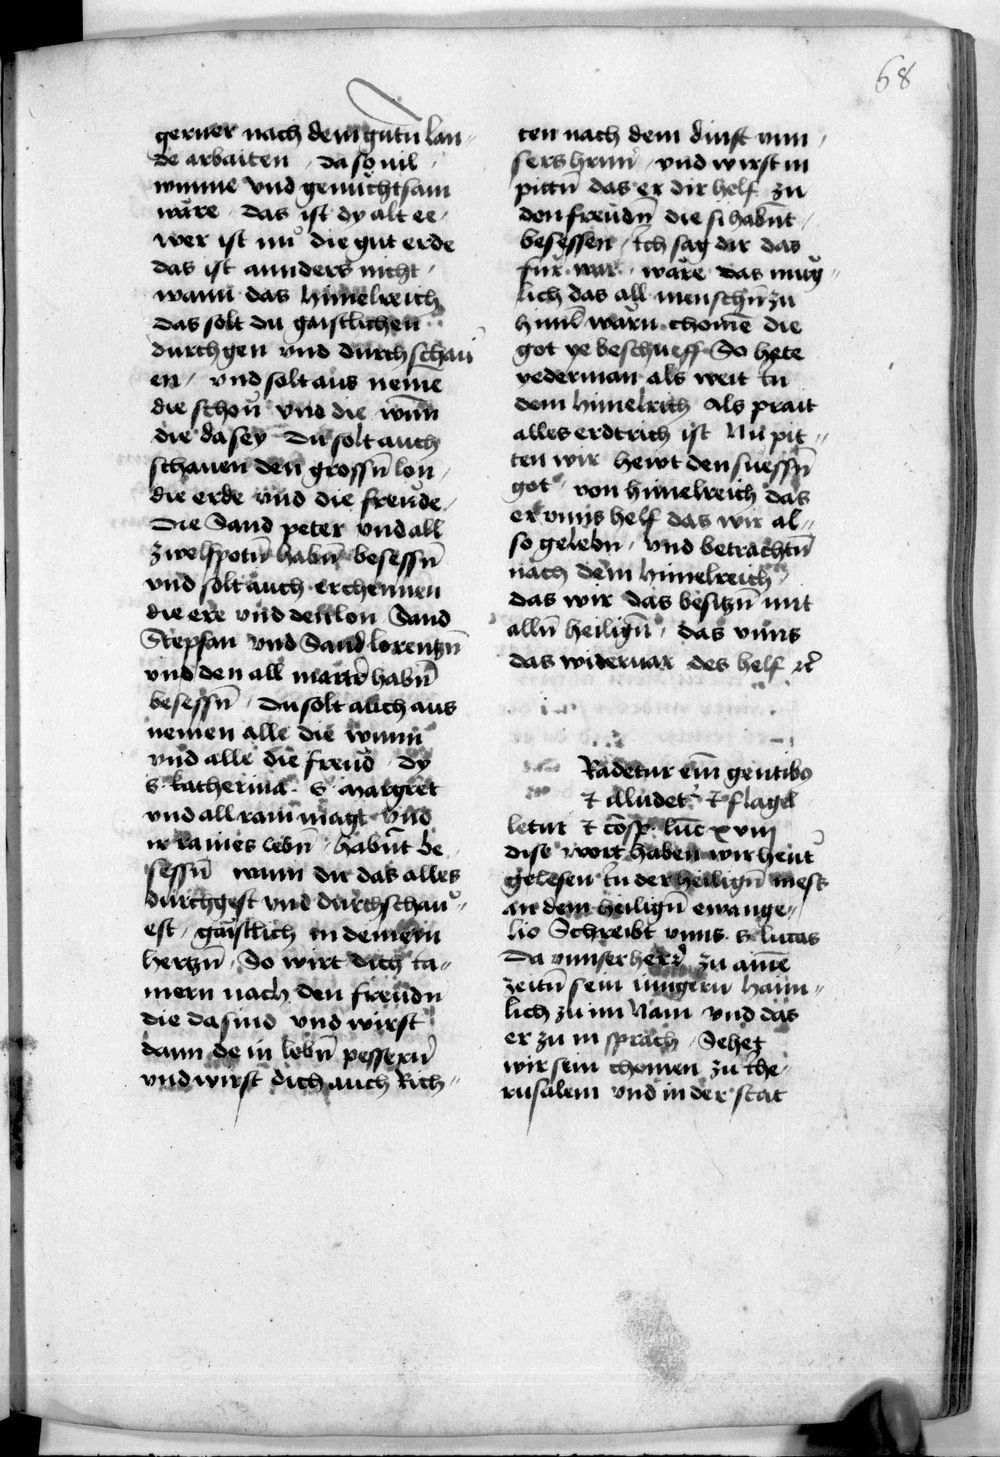 68
gerner nach dem gutn̄ lan-
de arbaiten , da so uil
wunne vnd genuchtsam
wäre . das ist dy alt ee .
wer ist nů die gut erde
das ist annders nicht ,
wann das himelreich
das solt du gaistlichen
durchgen vnd durchschau
en , vnd solt aus neme
die schon̄ vnd die wun̄
die da sey Du solt auch
schauen den grossn̄ lon ,
die erde vnd die freude ,
Die Sand peter vnd all
zwelfpotn̄ habn̄ besessn̄
vnd solt auch erchennen
die ere vnd den lon Sand
Stepfan vnd Sand lorentzn̄
vnd den all martrer habn̄
besessn̄ , du solt auch aus
nemen alle die wunn
vnd alle die freud , dy
s . katherina . s . margret
vnd all rain magt vnd
ir raines lebn̄ , habn̄t be
sessn̄ wann du das alles
durchgest vnd durchschau-
est , gaistlich in deinem
hertzn̄ . So wirt dich ia-
mern nach den freudn
die da sind vnd wirst
dann dein lebn̄ pessern̄
vnd wirst dich auch Rich-
ten nach dem dinst vnn
sers hrnn̄ , vnd wirst in
pittn̄ das er dir helf zu
den freudn̄ die si habn̄t ,
besessen , Ich sag dir das
fur war . wäre das mug-
lich das all menschn̄ zu
himl warn chomē die
got ye beschueff So hete
yederman als weit in
dem himelrich Als prait
alles erdtrich ist Nu pit-
ten wir hewt den suessn̄
got , von himelreich das
er vnns helf das wir al-
so gelebn , vnd betrachtn̄
nach dem himelreich ,
das wir das besitzn̄ mit
alln̄ heilign̄ , das vnns
das widervar des helf rc̄
Radetur em̄ gentibꝫ
⁊ illudet᷑ ⁊ flagel
letur ⁊ cōsp luc̄ xviij
dise wort haben wir heut
gelesen In der heilign̄ mess
an dem heilign̄ ewange-
lio Schreibt vnns . s . lucas
Da vnnser herr zu ainē
zeitn̄ sein iungern haim-
lich zu im Nam vnd das
er zu in sprach , Sehet
wir sein chomen zu Ihe-
rusalem vnd in der stat